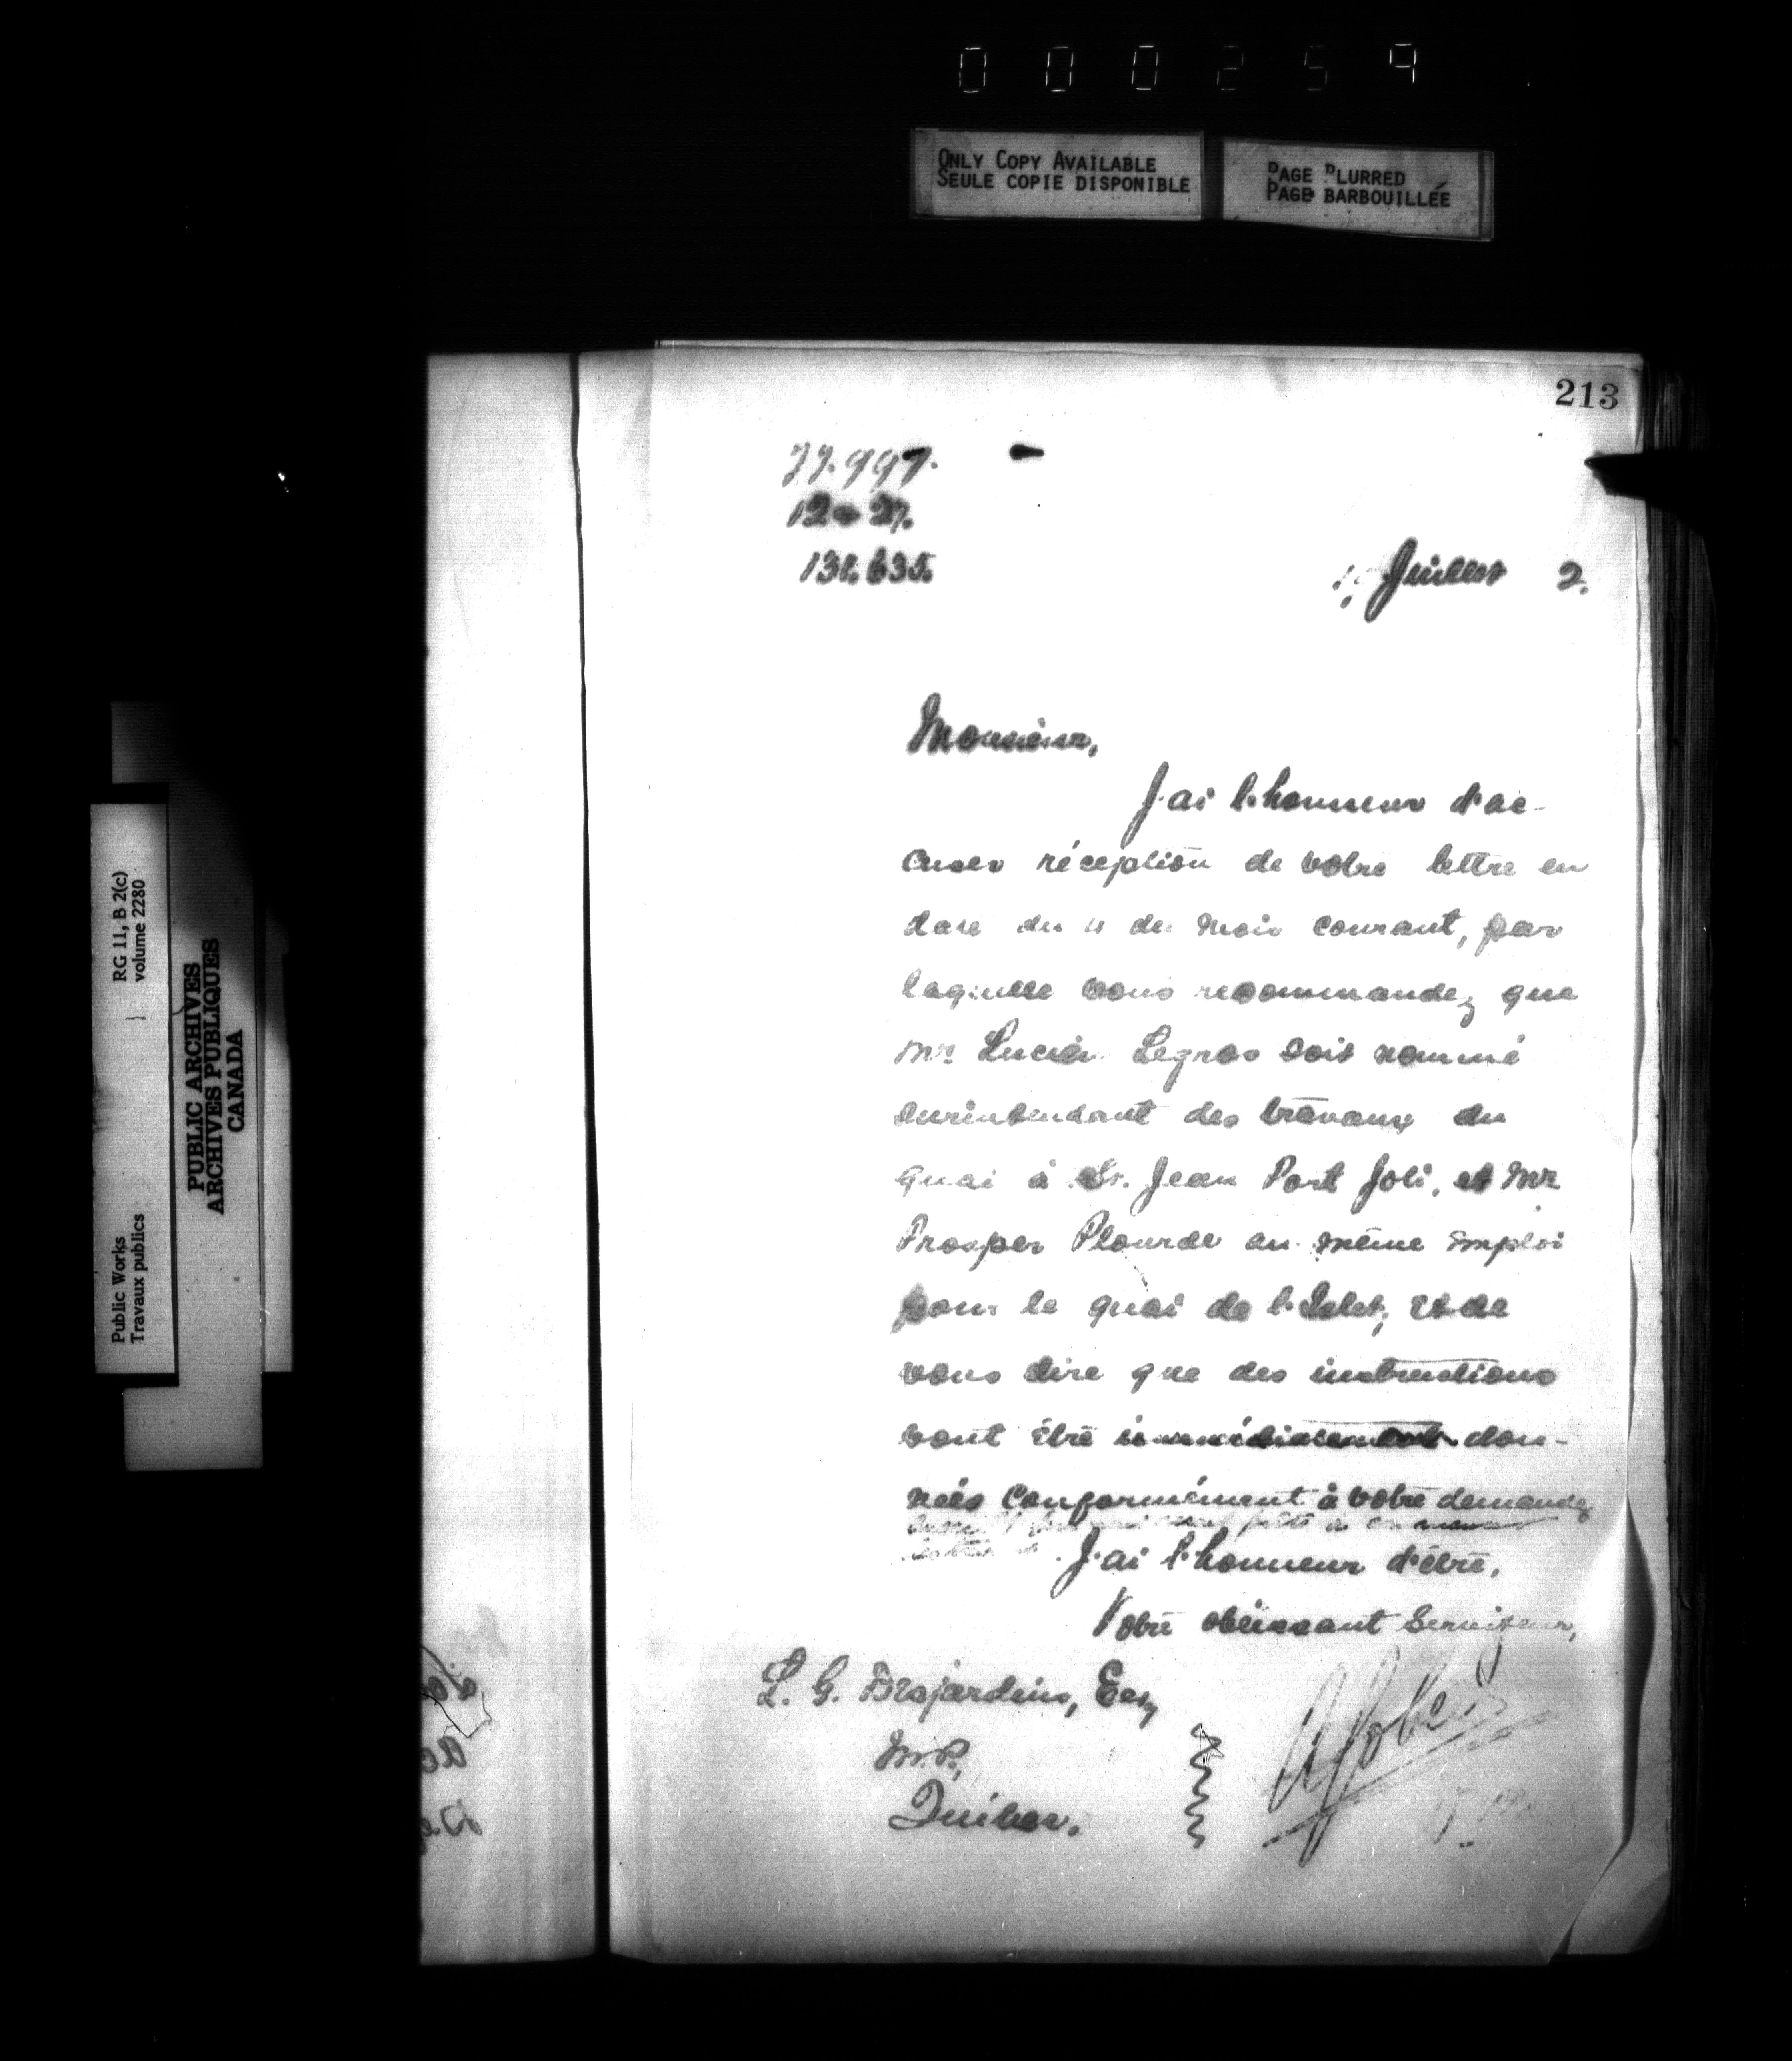 000259
ONLY COPY AVAILABLE
SEULE COPIE DISPONIBLE
PAGE BLURRED
PAGE BARBOUILLÉE
Public Works
Travaux publics
RG 11, B 2(c)
volume 2280
PUBLIC ARCHIVES
ARCHIVES PUBLIQUES
CANADA
213
77.997.
12 27.
131.635.
Juillet 2.
Monsieur,
J'ai l'honneur d'ac-
cuser réception de votre lettre en
date du 11 du mois courant, par
laquelle vous recommandez que
Mr. Lucien Legros soit nommé
surintendant des travaux du
quai à St. Jean Port Joli, et Mr
Prosper Plourde au même emploi
pour le quai de l'Islet, et de
vous dire que des instructions
vont être immédiatement don-
nées conformément à votre demande
J'ai l'honneur d'être,
Votre obéissant Serviteur,
L. G. Desjardins, Esq
M.P.,
Québec.